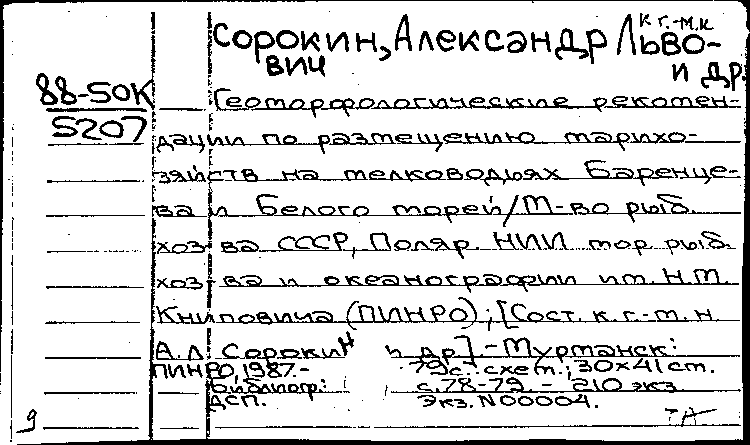 к г.-м.н
Сорокин, Александр Льво-
вич и др.
88-5ОК
5207
Геоморфологические рекомен-
дации по размещению марихо-
зяйств на мелководьях Баренце-
ва и Белого морей/М-во рыб.
хоз-ва СССР, Поляр. НИИ мор. рыб.
хоз-ва и океанографии им. Н.М.
Книповича (ПИНРО); [Сост. к.г.-м.н.
А.Л. Сорокин и др].-Мурманск:
ПИНРО, 1987.- 79с.: схем.; 30×41 см.
Библиогр: с.78-79. - 210 экз
ДСП. Экз. N00004.
9